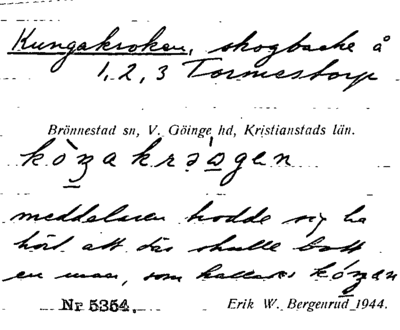 Kungakroken, skogbacke å
1, 2, 3 Tormestorp
Brönnestad sn, V. Göinge hd, Kristianstads län.
meddelaren trodde sig ha
hört att där skulle bott
en man, som kallats
Nr 5354. Erik W. Bergenrud 1944.